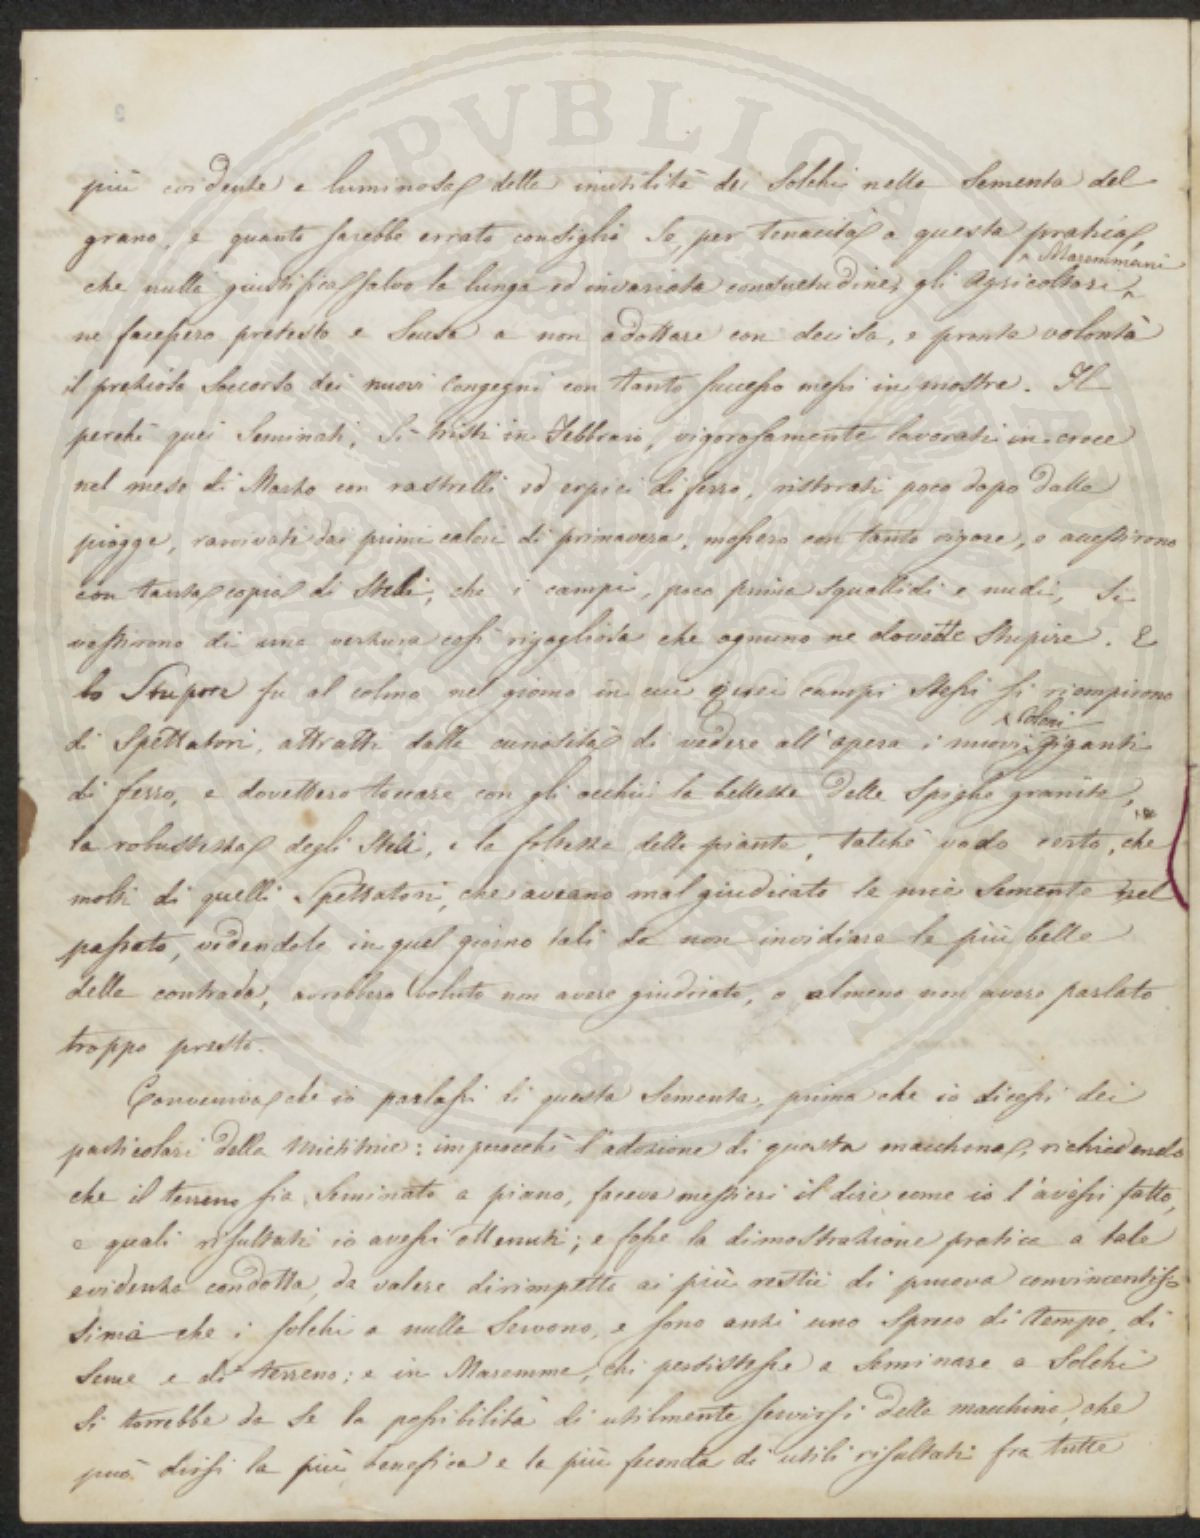 PVBLICA
più evidente e luminosa della inutilità dei Solchi nella Sementa del
grano, e quanto sarebbe errato consiglio se, per tenacità a questa pratica,
che nulla giustifica salvo la lunga ed invariata consuetudine, gli Agricoltori ^ Maremmani
ne facessero pretesto e scusa a non adottare con decisa, e pronta volontà
il prezioso soccorso dei nuovi Congegni con tanto successo messi in mostra. Il
perchè quei Seminati, sì tristi in Febbraio, vigorosamente lavorati in croce
nel mese di Marzo con rastrelli ed erpici di ferro, ristorati poco dopo dalle
piogge, ravvivati dai primi calori di primavera, mossero con tanto vigore, e accestirono
con tanta copia di Steli, che i campi, poco prima squallidi e nudi, si
vestirono di una verzura così rigogliosa che ognuno ne dovette stupire. E
lo Stupore fu al colmo nel giorno in cui quei campi stessi si riempirono
di Spettatori, attratti dalla curiosità di vedere all'opera i nuovi ^ Coloni giganti
di ferro, e dovettero toccare con gli occhi la bellezza delle Spighe granite,
la robustezza degli Steli, e la foltezza delle piante, talchè vado certo, che
molti di quelli Spettatori, che aveano mal giudicato le mie Semente nel
passato, vedendole in quel giorno tali da non invidiare le più belle
della contrada, avrebbero voluto non avere giudicato, o almeno non avere parlato
troppo presto.
Conveniva che io parlassi di questa Sementa, prima che io dicessi dei
particolari della Mietitrice: imperocchè l'adozione di questa macchina, richiedendo
che il terreno sia Seminato a piano, faceva mestieri il dire come io l'avessi fatto,
e quali risultati io avessi ottenuti; e fosse la dimostrazione pratica a tale
evidenza condotta, da valere dirimpetto ai più restii di pruova convincentis-
sima che i solchi a nulla Servono, e sono anzi uno Spreco di tempo, di
Seme e di terreno; e in Maremma, chi persistesse a Seminare a Solchi
Si torrebbe da se la possibilità di utilmente servirsi della macchina, che
può dirsi la più benefica e la più feconda di utili risultati fra tutte